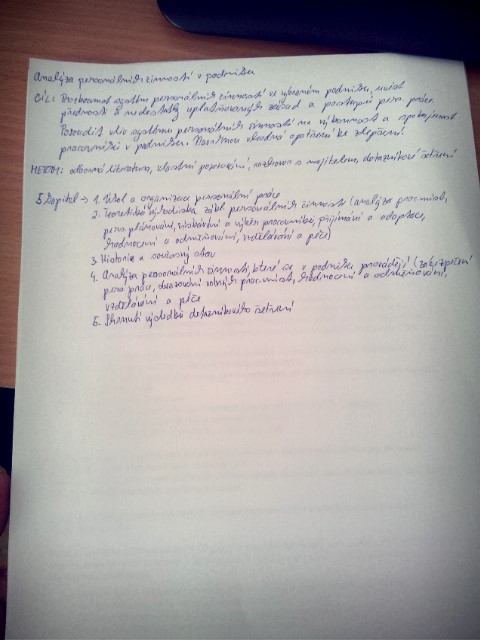 Analýza personálních činností v podniku
CÍL: Prozkoumat systém personálních činností ve vybraném podniku, nalézt
přednosti a nedostatky uplatňovaných zásad a postupů pers. práce.
Posoudit vliv systému personálních činností na výkonnost a spokojenost
pracovníků v podniku. Navrhnou vhodná opatření ke zlepšení.
METODY: odborná literatura, vlastní pozorování, rozhovor s majitelem, dotazníkové šetření
5 kapitol -> 1. Úkol a organizace personální práce
2. Teoretická východiska zákl. personálních činností (analýza prac. míst,
pers. plánování, získávání a výběr pracovníků, přijímání a adaptace,
hodnocení a odměňování, vzdělávání a péče)
3. Historie a současný stav
4. Analýza personálních činností, které se v podniku provádějí (zabezpečení
pers. práce, obsazování volných prac. míst, hodnocení a odměňování,
vzdělávání a péče
5. Shrnutí výsledků dotazníkového šetření